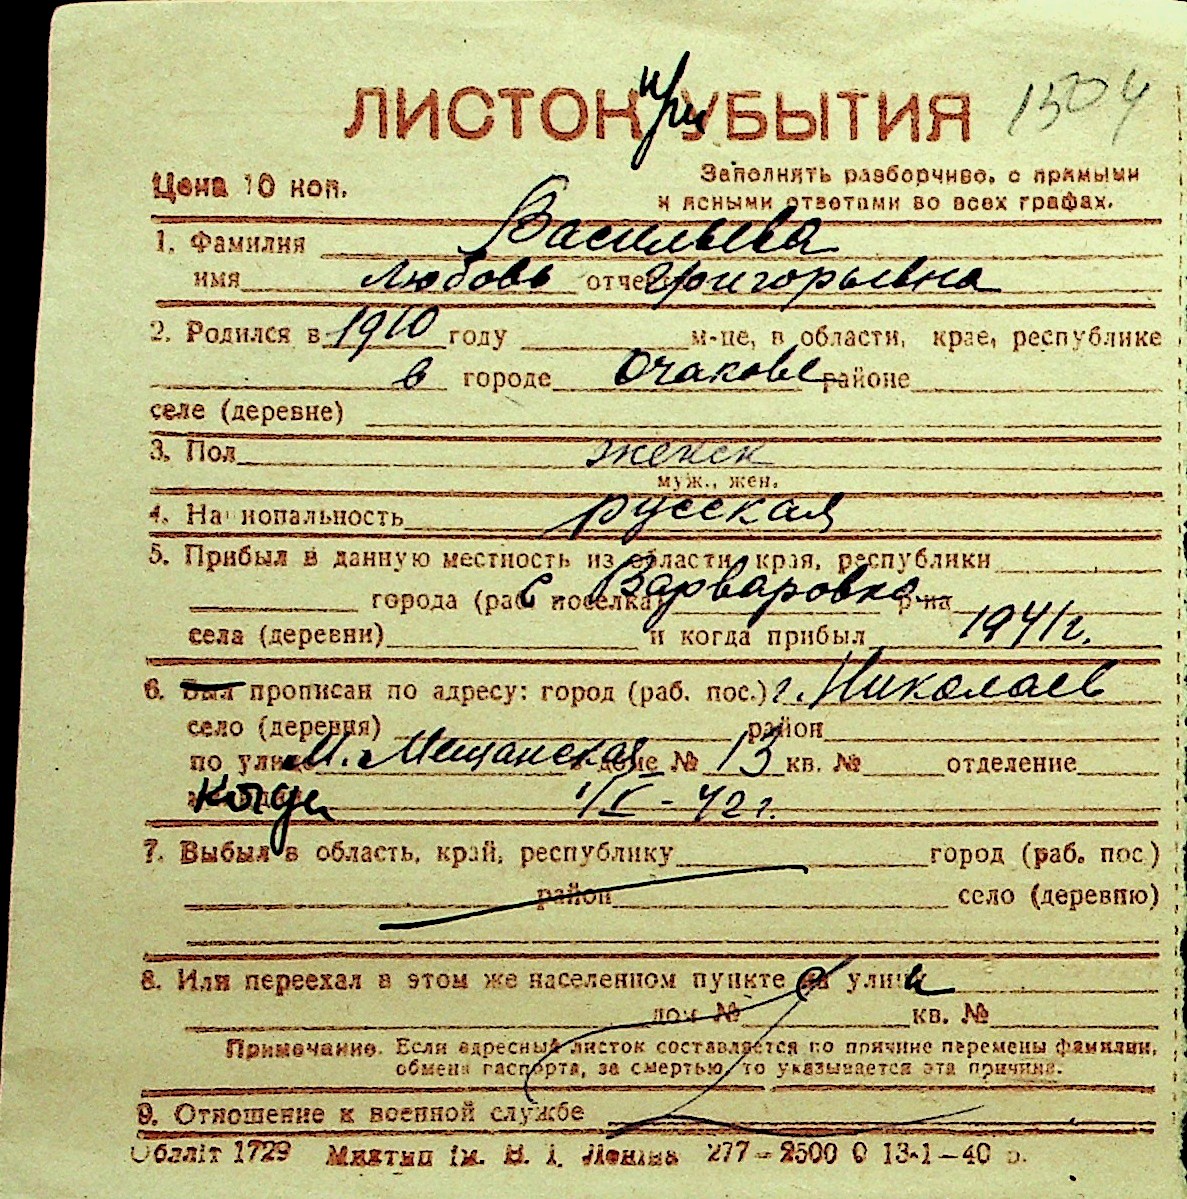 ЛИСТОК при УБЫТИЯ 1504
Цена 10 коп.
Заполнять разборчиво, с прямыми
и ясными ответами во всех графах.
1. Фамилия Васильева
имя Любовь отчес Григорьевна
2. Родился в 1910 году м-це, в области, крае, республике
в городе Очакове районе
селе (деревне)
3. Пол женск
муж., жен.
4. Национальность русская
5. Прибыл в данную местность из области, края, республики
города (раб. поселка) с Варваровка р-на
села (деревни) и когда прибыл 1941 г.
6. Был прописан по адресу: город (раб. пос.) г. Николаев
село (деревня) район
по улице М. Мещанская доме № 13 кв. № отделение
когда 1/V - 42 г.
7. Выбыл в область, край, республику город (раб. пос.)
район село (деревню)
8. Или переехал в этом же населенном пункте с улицы
дом № кв. №
Примечание. Если адресный листок составляется по причине перемены фамилии,
обмена паспорта, за смертью, то указывается эта причина.
9. Отношение к военной службе
Обліт 1729 Миктип ім. В. І. Леніна 277 – 2500 0 13-1–40 р.